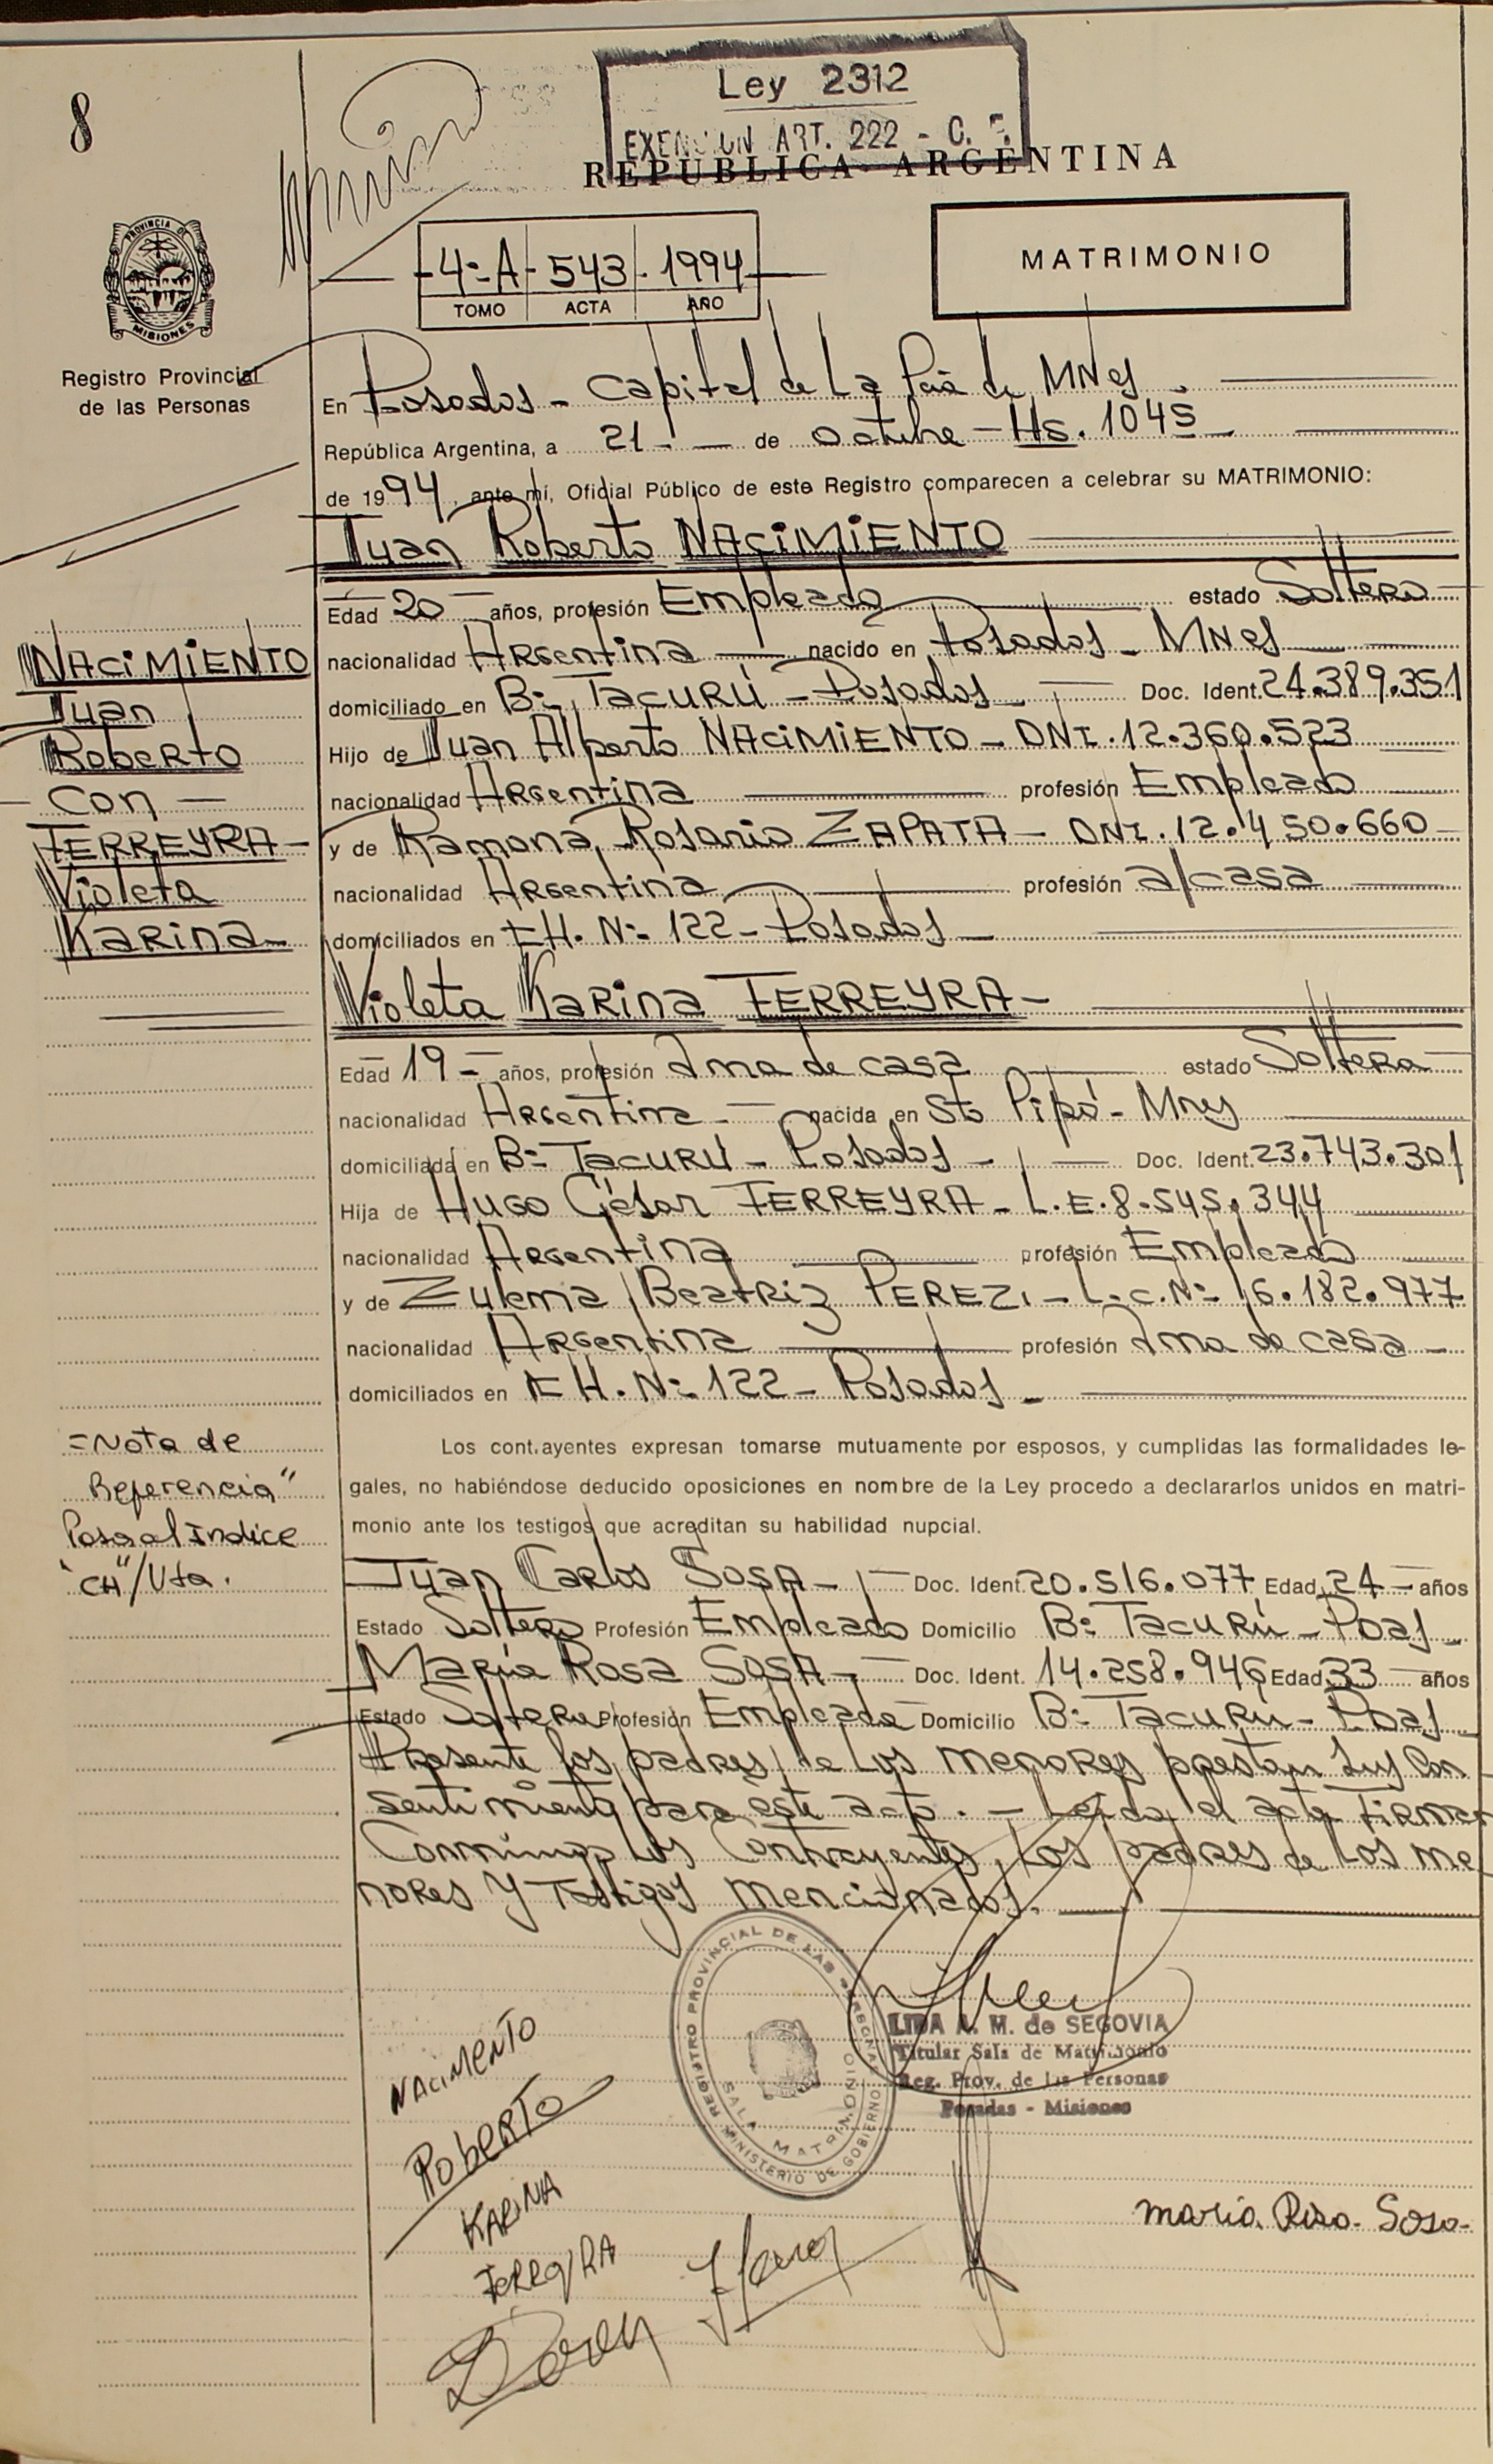 8
Ley 2312
EXENCION ART. 222 - C. F.
REPUBLICA ARGENTINA
PROVINCIA DE MISIONES
Registro Provincial
de las Personas
4º A - 543 - 1994
TOMO ACTA AÑO
MATRIMONIO
En Posadas - Capital de La Pcia de MNes
República Argentina, a 21 - de octubre - Hs. 1045
de 1994, ante mí, Oficial Público de este Registro comparecen a celebrar su MATRIMONIO:
Juan Roberto NACIMIENTO
Edad 20 años, profesión Empleado estado Soltero
nacionalidad Argentina nacido en Posadas - MNes
domiciliado en Bº Tacurú - Posadas - Doc. Ident. 24.389.351
Hijo de Juan Alberto NACIMIENTO - DNI. 12.360.523
nacionalidad Argentina profesión Empleado
y de Ramona Rosario ZAPATA - DNI. 12.450.660
nacionalidad Argentina profesión a/casa
domiciliados en CH. Nº 122 - Posadas -
Violeta Karina FERREYRA -
Edad 19 - años, profesión Ama de casa estado Soltera
nacionalidad Argentina - nacida en Sto Pipó - Mnes
domiciliada en Bº Tacurú - Posadas - Doc. Ident. 23.743.301
Hija de Hugo César FERREYRA - L.E. 8.545.344
nacionalidad Argentina profesión Empleado
y de Zulema Beatriz PEREZ. - L.C. Nº 6.182.977
nacionalidad Argentina profesión Ama de casa -
domiciliados en CH. Nº 122 - Posadas -
Los contrayentes expresan tomarse mutuamente por esposos, y cumplidas las formalidades le-
gales, no habiéndose deducido oposiciones en nombre de la Ley procedo a declararlos unidos en matri-
monio ante los testigos que acreditan su habilidad nupcial.
Juan Carlos SOSA - Doc. Ident. 20.516.077 Edad 24 - años
Estado Soltero Profesión Empleado Domicilio Bº Tacurú - Pdas -
María Rosa SOSA - Doc. Ident. 14.258.946 Edad 33 años
Estado Soltera Profesión Empleada Domicilio Bº Tacurú - Pdas -
Presente los padres de Los menores prestan sus Con
sentimiento para este acto. - Leída el acta Firman
Conmigo Los Contrayentes, Los padres de Los me
nores y Testigos mencionados.
NACIMIENTO
Juan
Roberto
- Con -
FERREYRA -
Violeta
Karina -
= Nota de
Referencia"
Pasa al Indice
"CH"/Vta.
REGISTRO PROVINCIAL DE LAS PERSONAS
MINISTERIO DE GOBIERNO
SALA MATRIMONIO
LIDA A. M. de SEGOVIA
Titular Sala de Matrimonio
Reg. Prov. de las Personas
Posadas - Misiones
NACIMENTO
ROBERTO
KARINA
FERREYRA
maria. Rosa. Sosa.